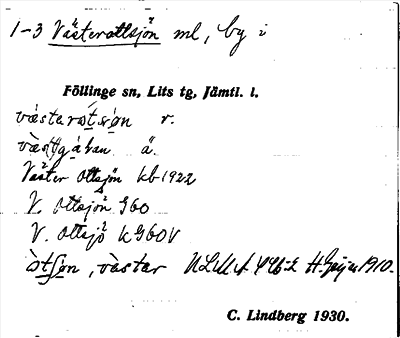 1-3 Västerottsjön ml, by i
Föllinge sn, Lits tg, Jämtl. l.
västarotsøn r.
ä.
Väster Ottsjön kb 1922
V. Ottsjön G60
V. Ottsjö K G60V
òtsøn, vàstar H. Geijer 1910.
C. Lindberg 1930.